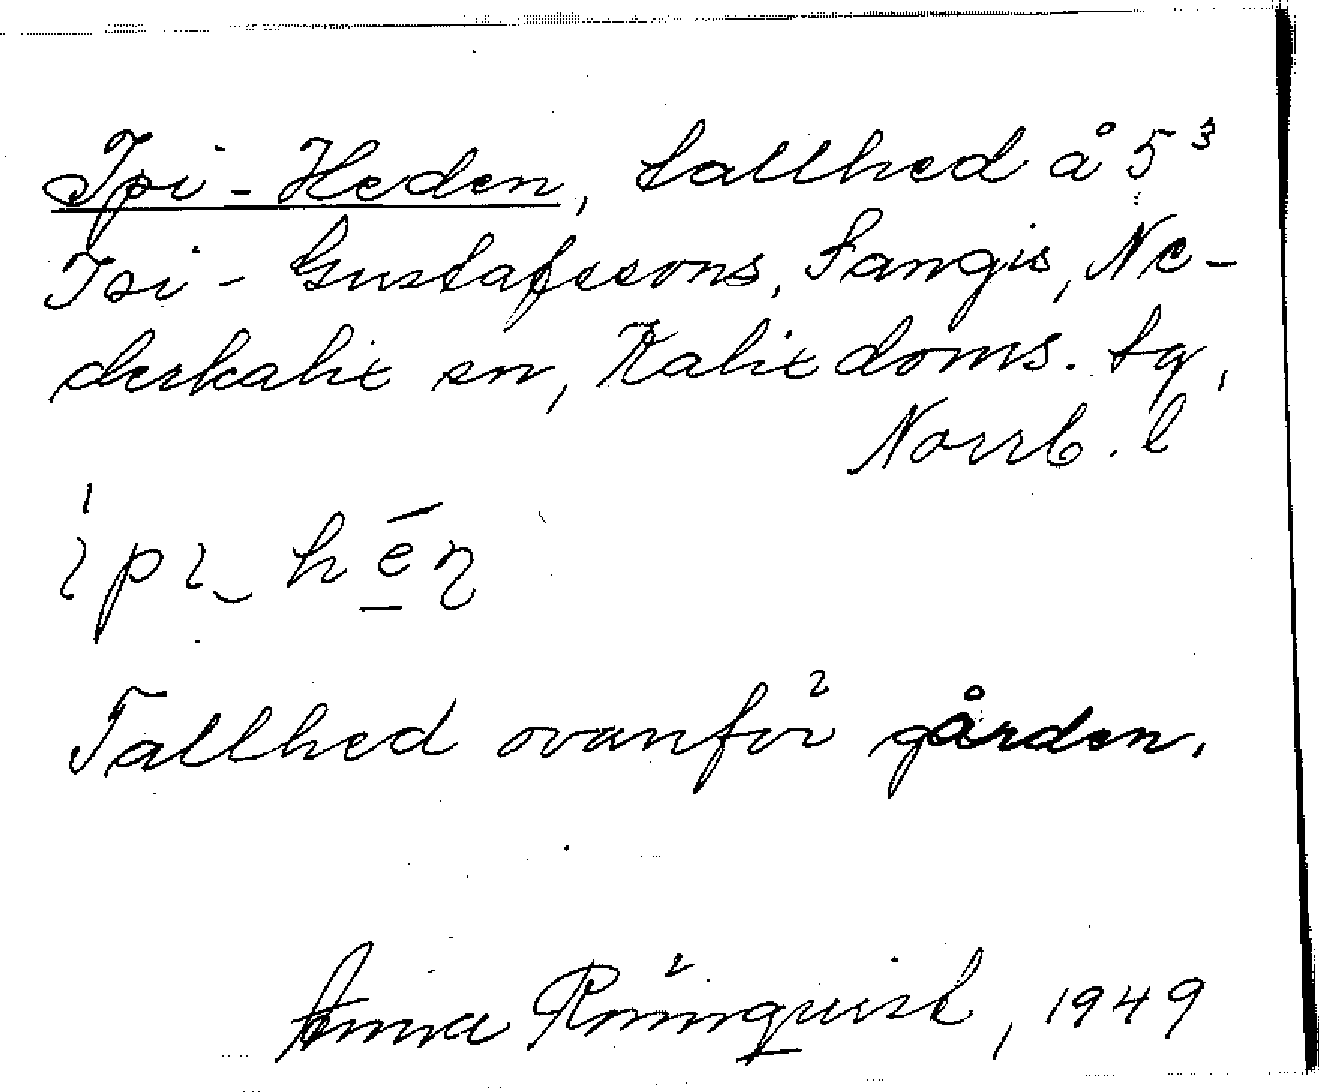 Ipi-Heden, tallhed å 5³
Isi-Gustafssons, Sangis, Ne-
derkalix sn, Kalix doms. tg,
Norrb. l
Tallhed ovanför gården.
Anna Rönnquist, 1949